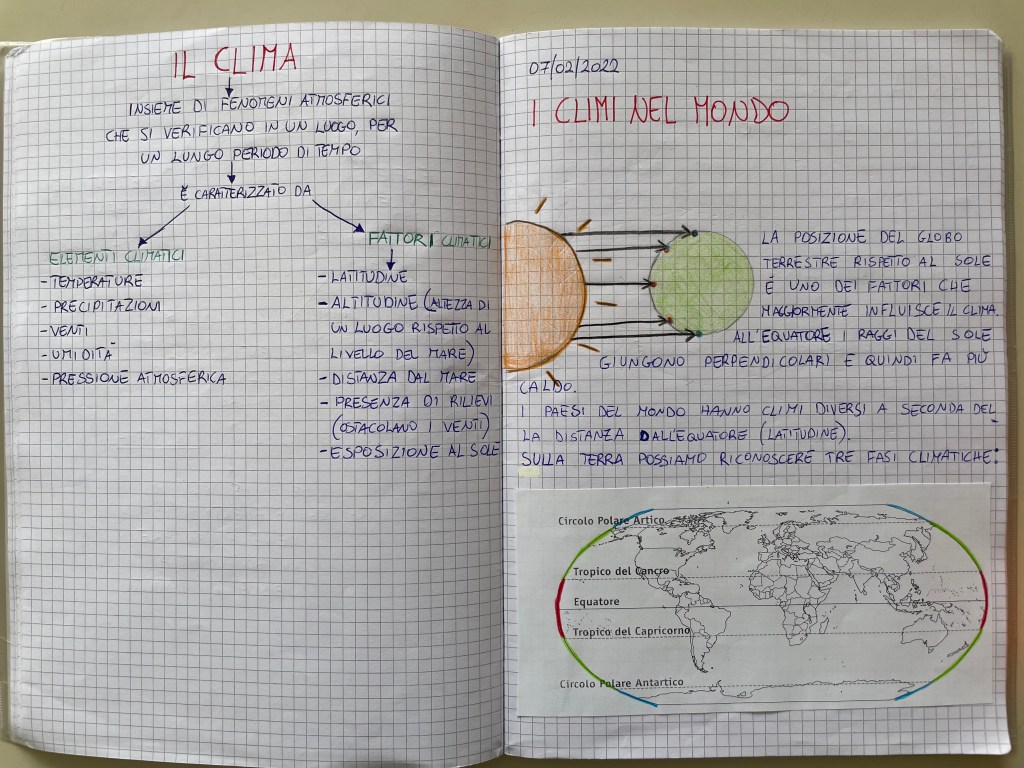 IL CLIMA
INSIEME DI FENOMENI ATMOSFERICI
CHE SI VERIFICANO IN UN LUOGO, PER
UN LUNGO PERIODO DI TEMPO
È CARATTERIZZATO DA
ELEMENTI CLIMATICI
- TEMPERATURE
- PRECIPITAZIONI
- VENTI
- UMIDITÀ
- PRESSIONE ATMOSFERICA
FATTORI CLIMATICI
- LATITUDINE
- ALTITUDINE (ALTEZZA DI
UN LUOGO RISPETTO AL
LIVELLO DEL MARE)
- DISTANZA DAL MARE
- PRESENZA DI RILIEVI
(OSTACOLANO I VENTI)
- ESPOSIZIONE AL SOLE
07/02/2022
I CLIMI NEL MONDO
LA POSIZIONE DEL GLOBO
TERRESTRE RISPETTO AL SOLE
È UNO DEI FATTORI CHE
MAGGIORMENTE INFLUISCE IL CLIMA.
ALL'EQUATORE I RAGGI DEL SOLE
GIUNGONO PERPENDICOLARI E QUINDI FA PIÙ
CALDO.
I PAESI DEL MONDO HANNO CLIMI DIVERSI A SECONDA DEL-
LA DISTANZA DALL'EQUATORE (LATITUDINE).
SULLA TERRA POSSIAMO RICONOSCERE TRE FASI CLIMATICHE:
Circolo Polare Artico
Tropico del Cancro
Equatore
Tropico del Capricorno
Circolo Polare Antartico